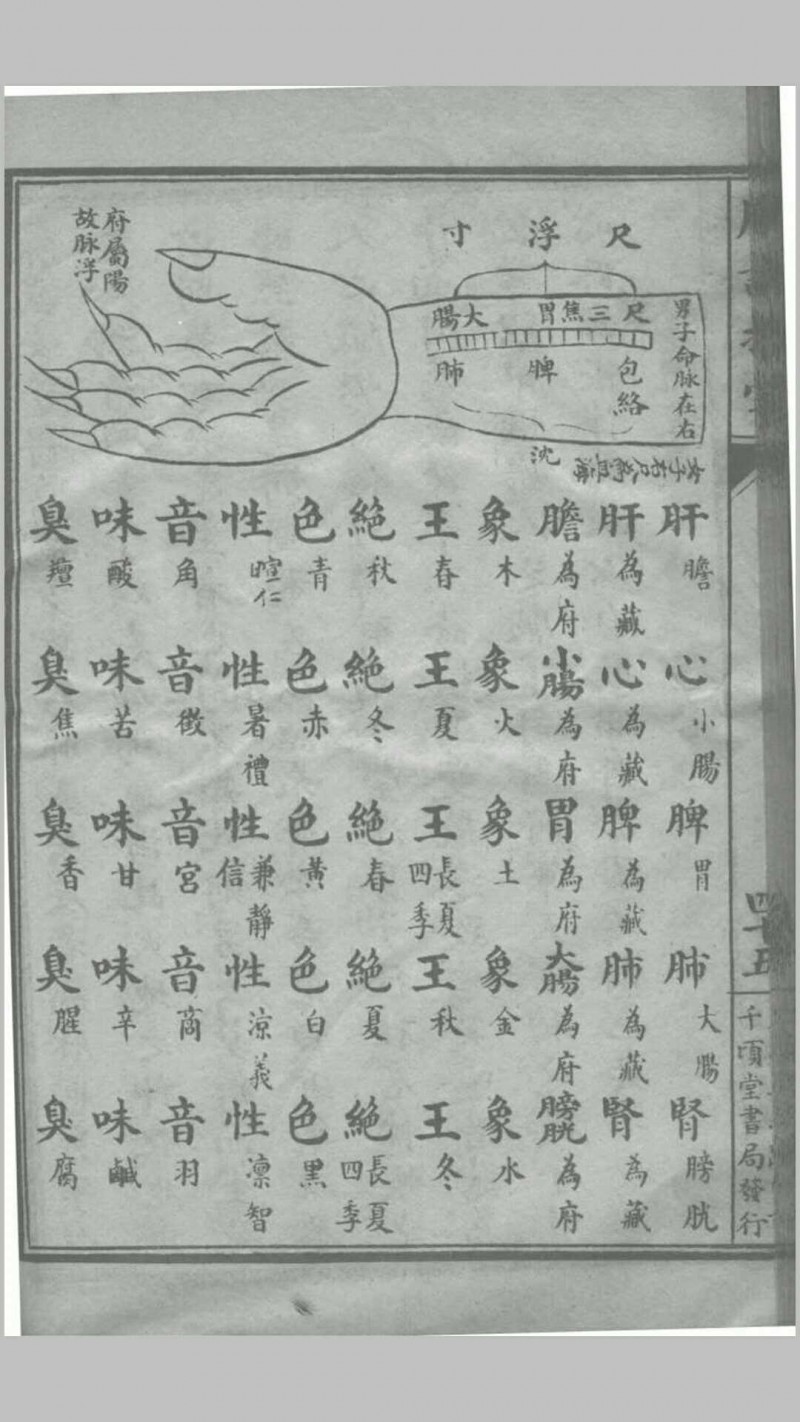 尺
浮
寸
府屬陽
故脉浮
男子命脉在右
尺
三焦
胃
大腸
包絡
脾
肺
沈
肝膽
肝為藏
膽為府
象木
王春
絕秋
色青
性暄仁
音角
味酸
臭羶
心小腸
心為藏
小腸為府
象火
王夏
絕冬
色赤
性暑禮
音徴
味苦
臭焦
脾胃
脾為藏
胃為府
象土
王長夏四季
絕春
色黃
性兼靜信
音宮
味甘
臭香
肺大腸
肺為藏
大腸為府
象金
王秋
絕夏
色白
性涼義
音商
味辛
臭腥
腎膀胱
腎為藏
膀胱為府
象水
王冬
絕長夏四季
色黑
性凛智
音羽
味鹹
臭腐
四十五
千頃堂書局發行